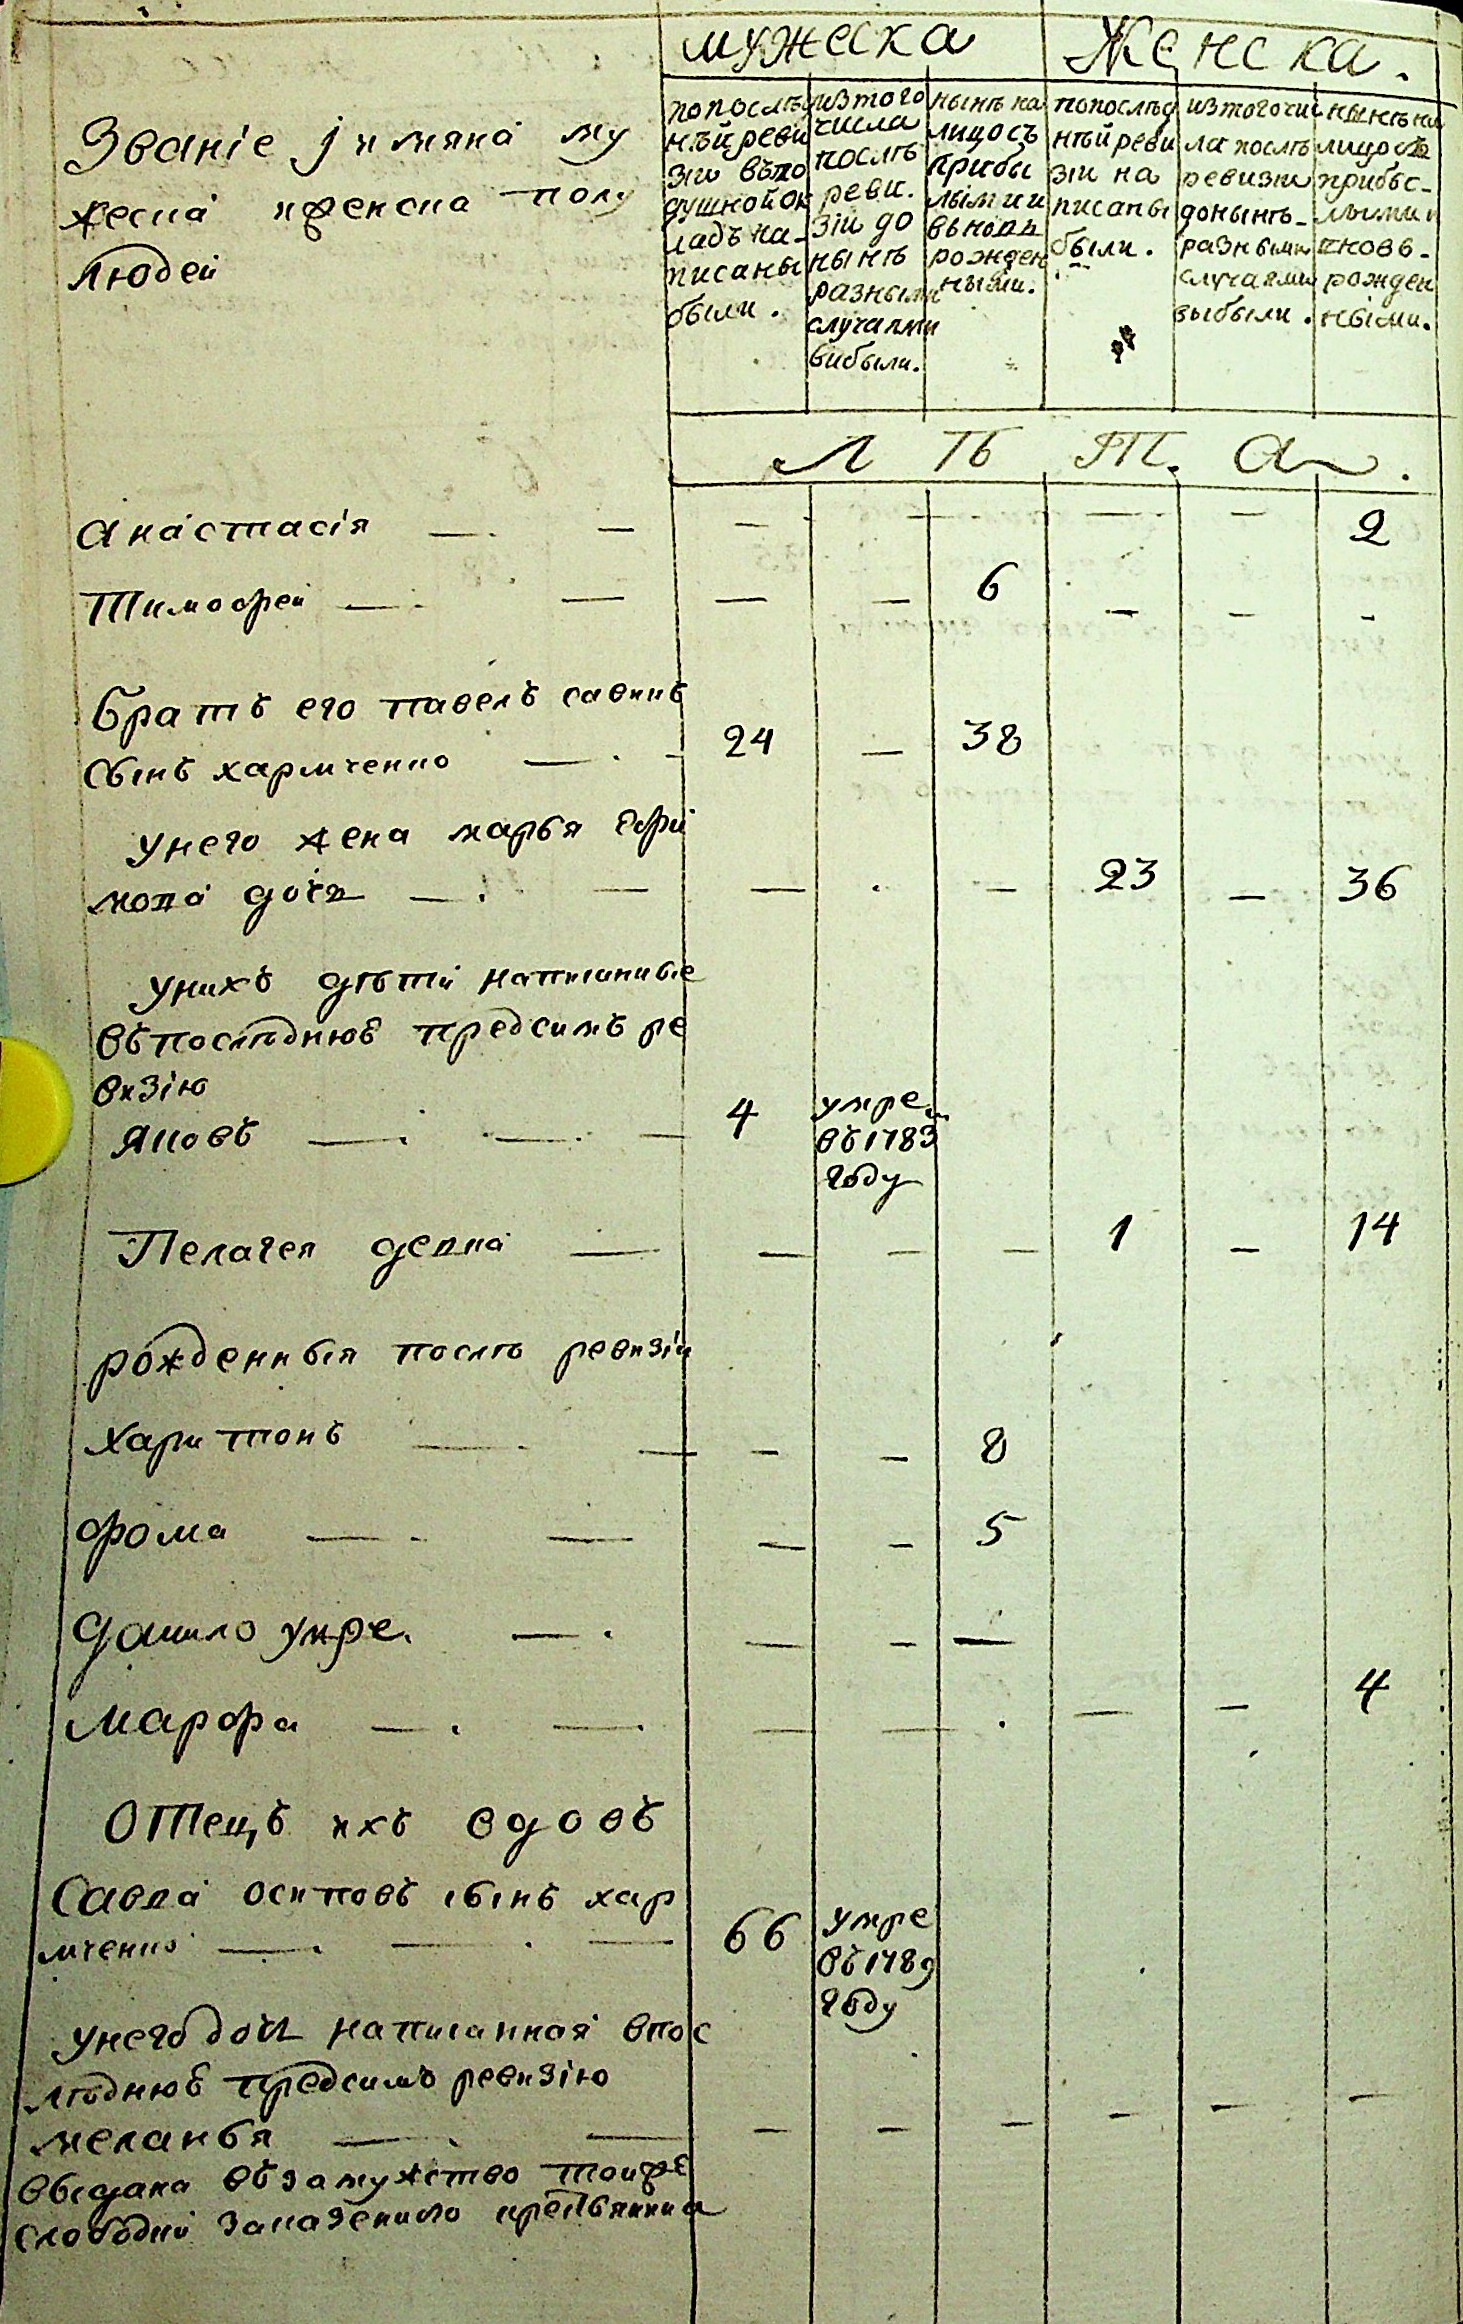 мужеска Женска.
Званіе ј имяна му
жеска иженска полу
людей
попослѣд
нѣй реви
зіи въпо
душной ок
ладъ на-
писаны
были.
изтого
числа
послѣ
реви.
зіи до
нынѣ
разными
случаями
вибыли.
нынѣ на
лицосъ
прибы
лыми и
вьновь
рожден
ными.
попослѣд
нѣй реви
зіи на
писаны
были.
изтогочис
ла послѣ
ревизіи
донынѣ-
разными
случаями
выбыли.
нынѣ на
лицосъ
прибы-
лыми и
вновь-
рожден
ными.
Л Ѣ Т. А.
Анастасія — — — — — — 2
Тимофей — — — — 6 — — -
братъ его павелъ савинъ
сынъ хармченко — 24 — 38
унего жена марья ефи
мова дочь — — — — 23 — 36
унихъ дѣти написаные
въпослѣднюю предсимъ ре
визію
Яковъ — — — 4 умре
въ 1783
году
Пелагея девка — — — — 1 — 14
рожденныя послѣ ревизіи
Харитонъ — — — — 8
фома — — — — 5
Данило умре. — — — —
Марфа — — — — — — 4
Отецъ ихъ вдовъ
Савва осиповъ сынъ хар
мченко — — — 66 умре
въ 1789
году
унего дочь написанная впос
лѣднюю предсимъ ревизію
меланья — — — — — — — —
выдана въ замужство тойже
слободы заказенного крестьянина